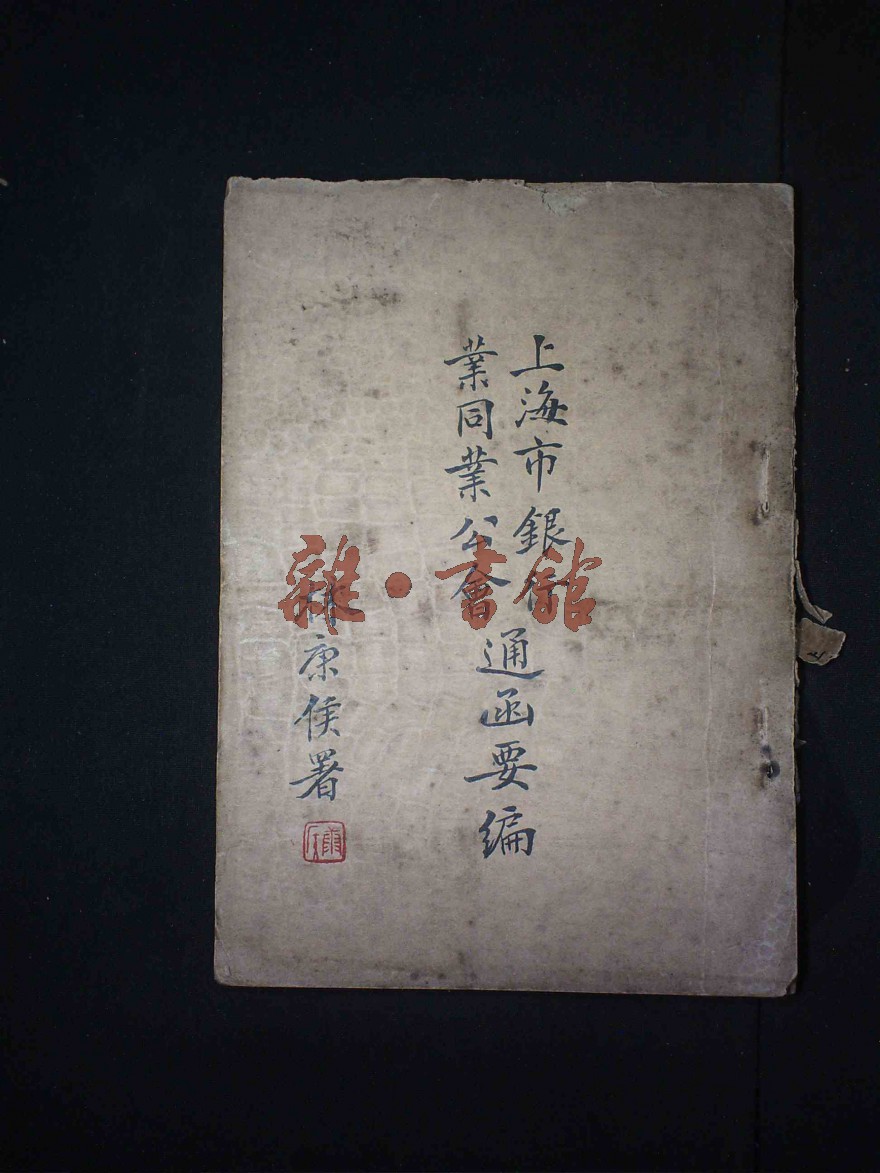 上海市銀行
業同業公會
通函要編
林康侯署
雜·書館